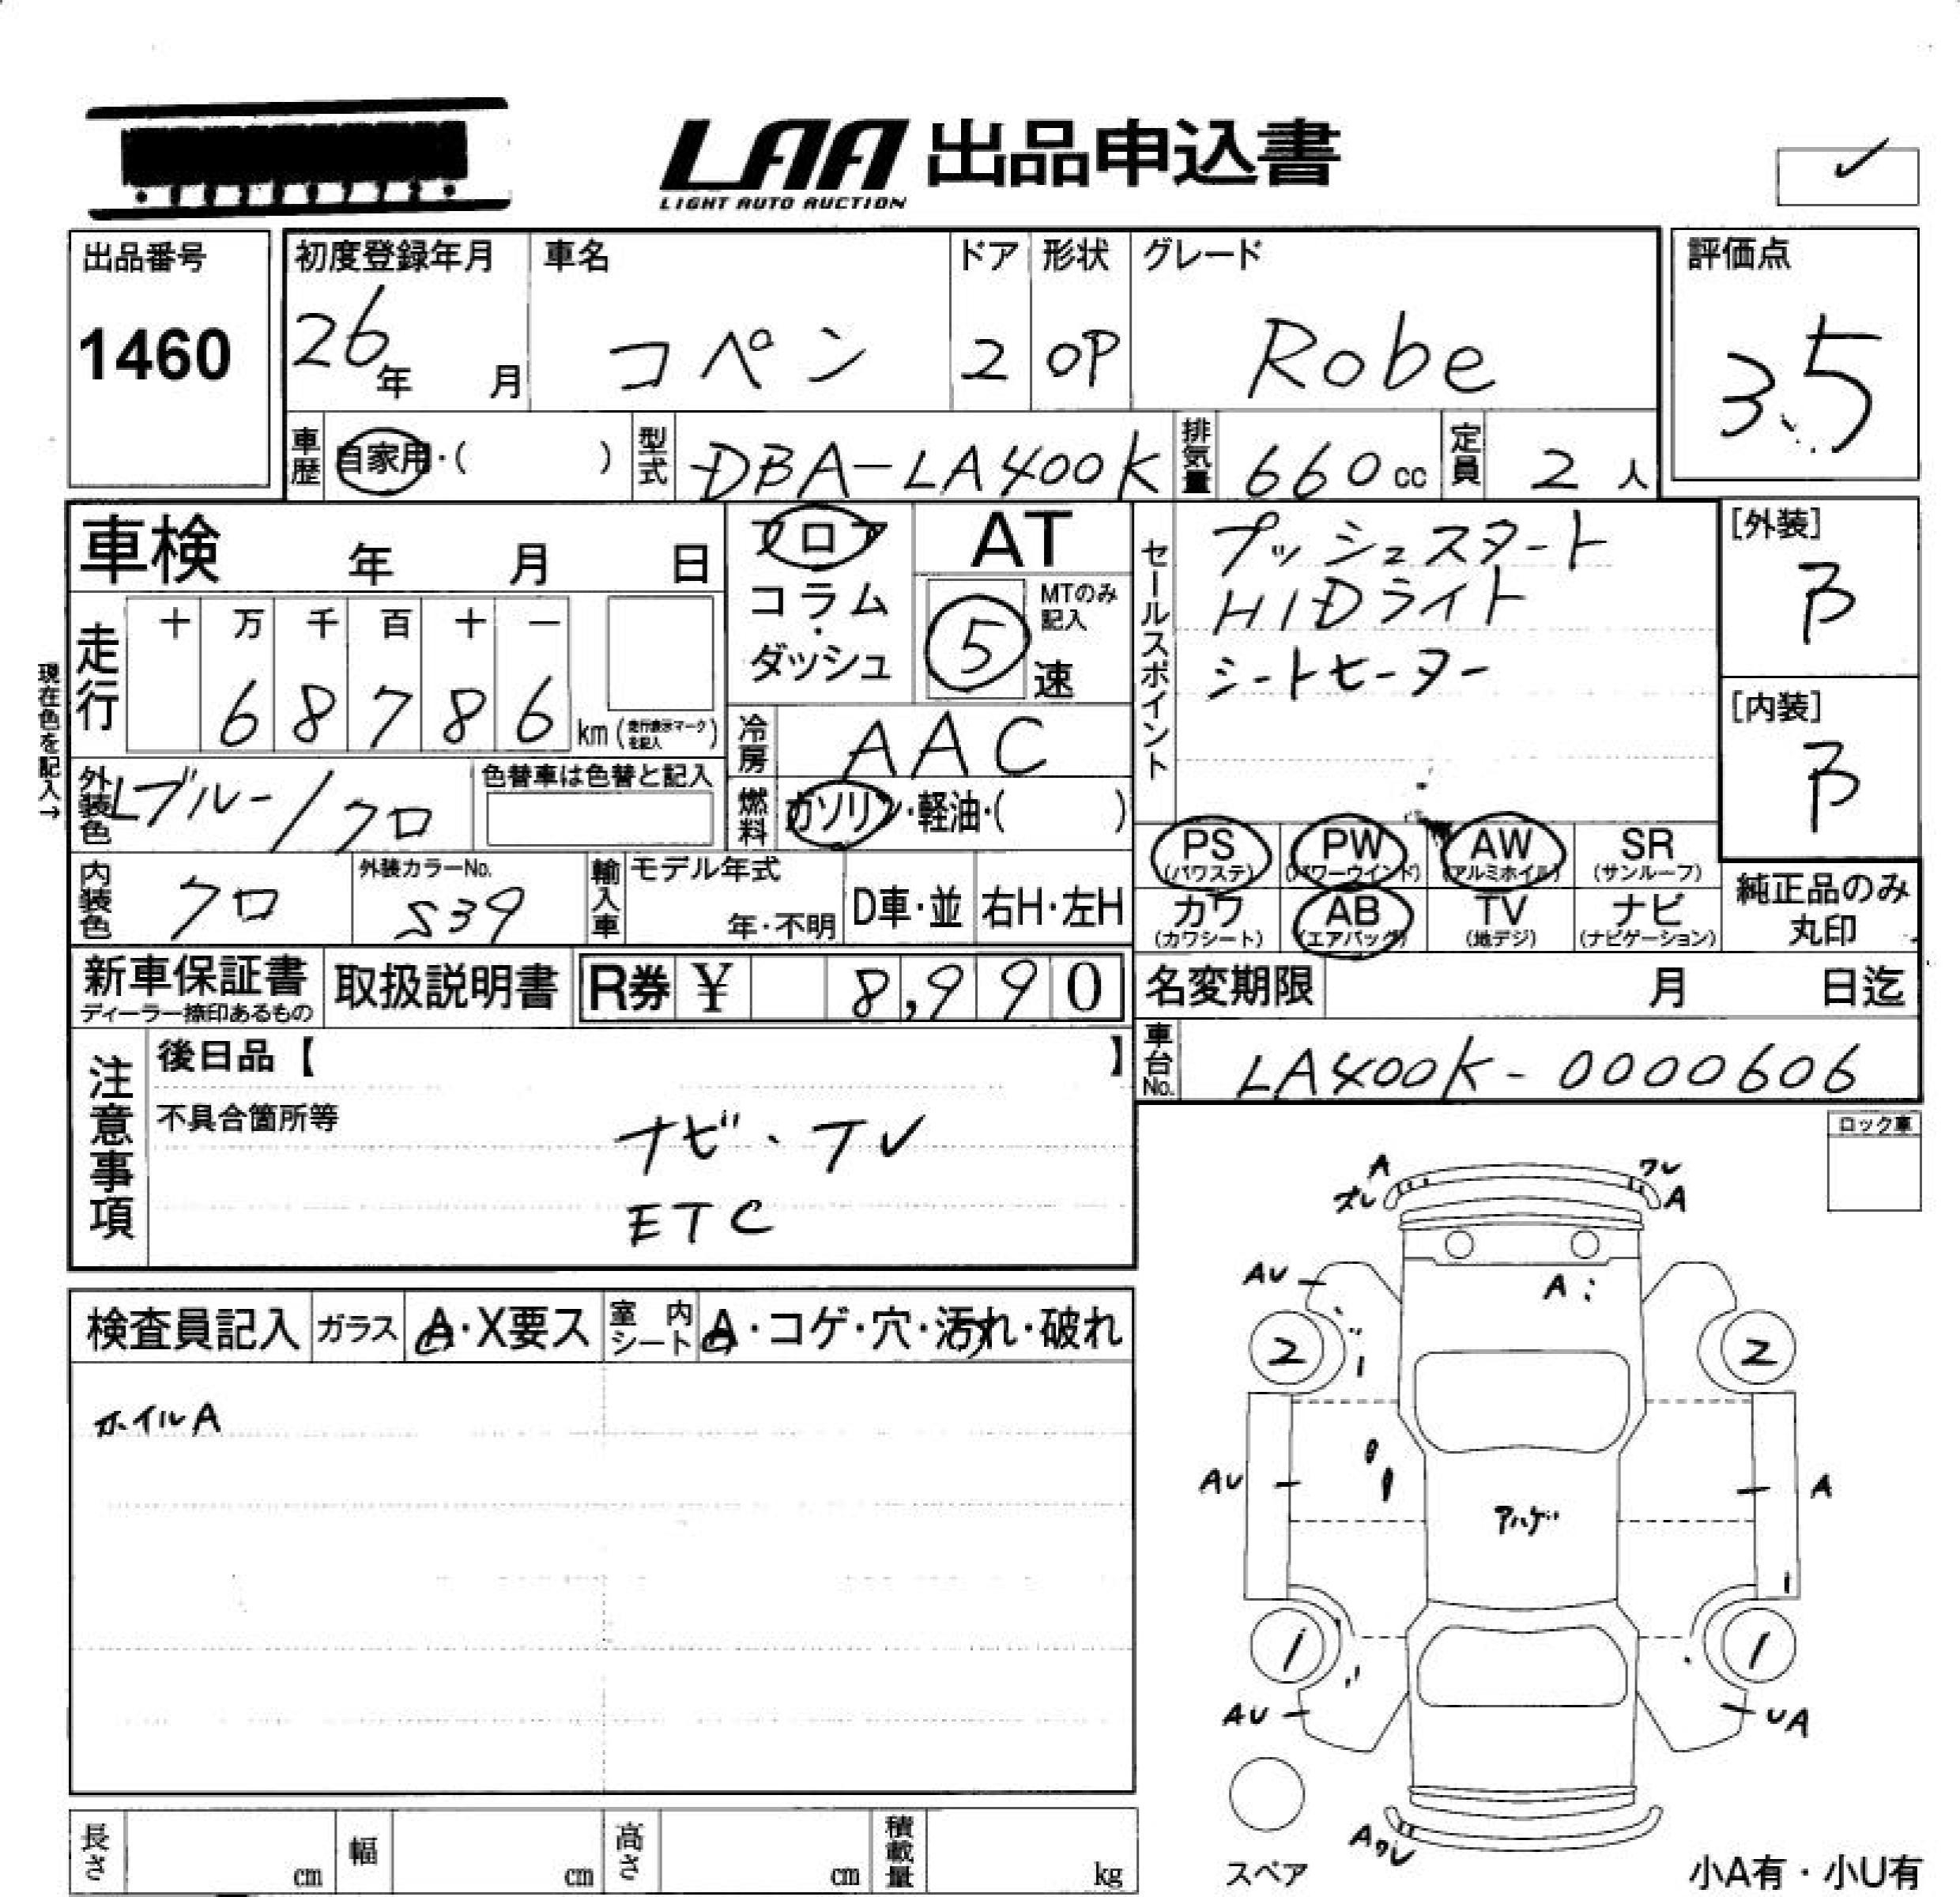 LAA 出品申込書
LIGHT AUTO AUCTION
出品番号
1460
初度登録年月
26年 月
車名
コペン
ドア
2
形状
OP
グレード
Robe
評価点
3.5
車歴 自家用・( )
型式 DBA-LA400K
排気量 660cc
定員 2人
車検 年 月 日
フロア
コラム・ダッシュ
AT
5速
MTのみ記入
セールスポイント
プッシュスタート
HIDライト
シートヒーター
[外装]
B
[内装]
B
現在色を記入→
走行
十 万 千 百 十 一
6 8 7 8 6 km (走行表示マークを記入)
冷房 AAC
外装色 Lブルー/クロ
色替車は色替と記入
燃料 ガソリン・軽油・( )
PS (パワステ)
PW (パワーウインド)
AW (アルミホイル)
SR (サンルーフ)
カワ (カワシート)
AB (エアバッグ)
TV (地デジ)
ナビ (ナビゲーション)
純正品のみ丸印
内装色 クロ
外装カラーNo.
S39
輸入車
モデル年式
年・不明
D車・並
右H・左H
新車保証書
ディーラー捺印あるもの
取扱説明書
R券 ¥ 8,990
名変期限 月 日迄
車台No. LA400K-0000606
注意事項
後日品【 】
不具合箇所等
ナビ・TV
ETC
ロック車
検査員記入
ガラス A・X要ス
室内シート A・コゲ・穴・汚れ・破れ
ホイルA
A
ズレ
ワレ
A
AU
A
2
2
AU
A
アハゲ
1
1
AU
UA
Aワレ
スペア
小A有・小U有
長さ cm
幅 cm
高さ cm
積載量 kg